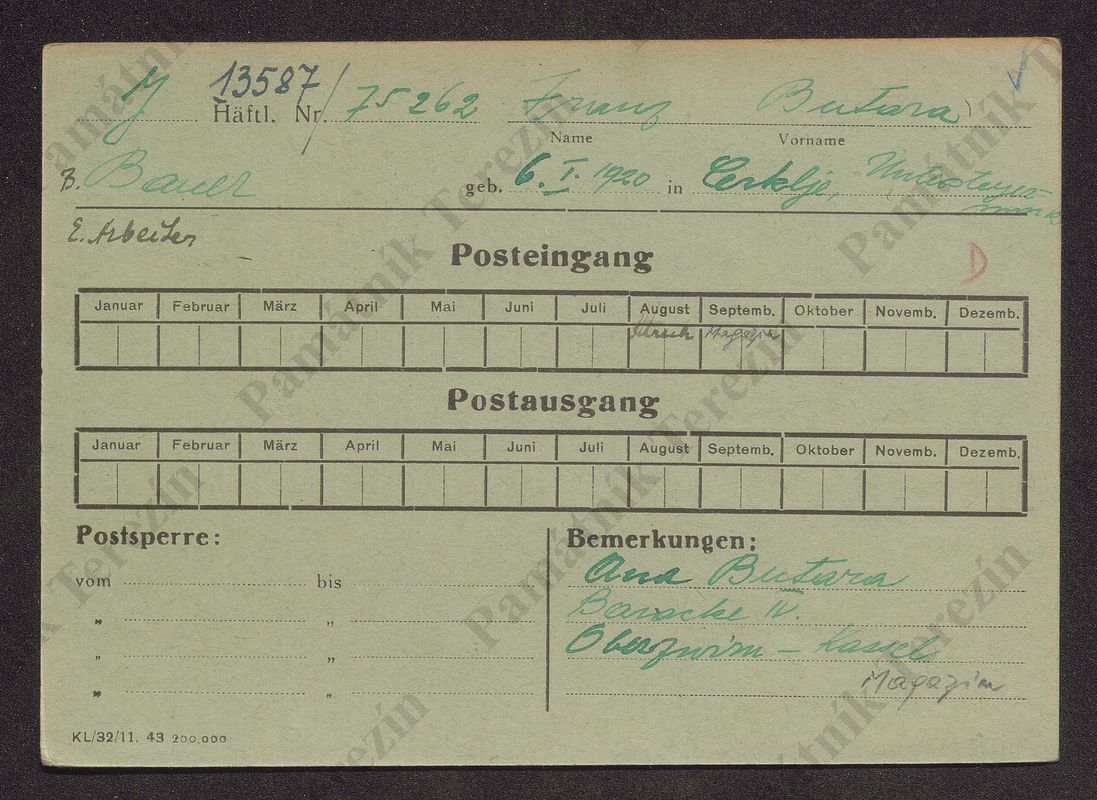 J 13587/
Häftl. Nr. 75262 Franz Butara
Name Vorname
B. Bauer geb. 6. I. 1920 in Cerklje,
E. Arbeiter
D
Posteingang
Januar Februar März April Mai Juni Juli August Septemb. Oktober Novemb. Dezemb.
Magazin
Postausgang
Januar Februar März April Mai Juni Juli August Septemb. Oktober Novemb. Dezemb.
Postsperre:
vom bis
„ „
„ „
„ „
Bemerkungen:
Ana Butara
Baracke IV.
Oberzwirn - Kassel
Magazin
KL/32/11. 43 200,000
Památník Terezín